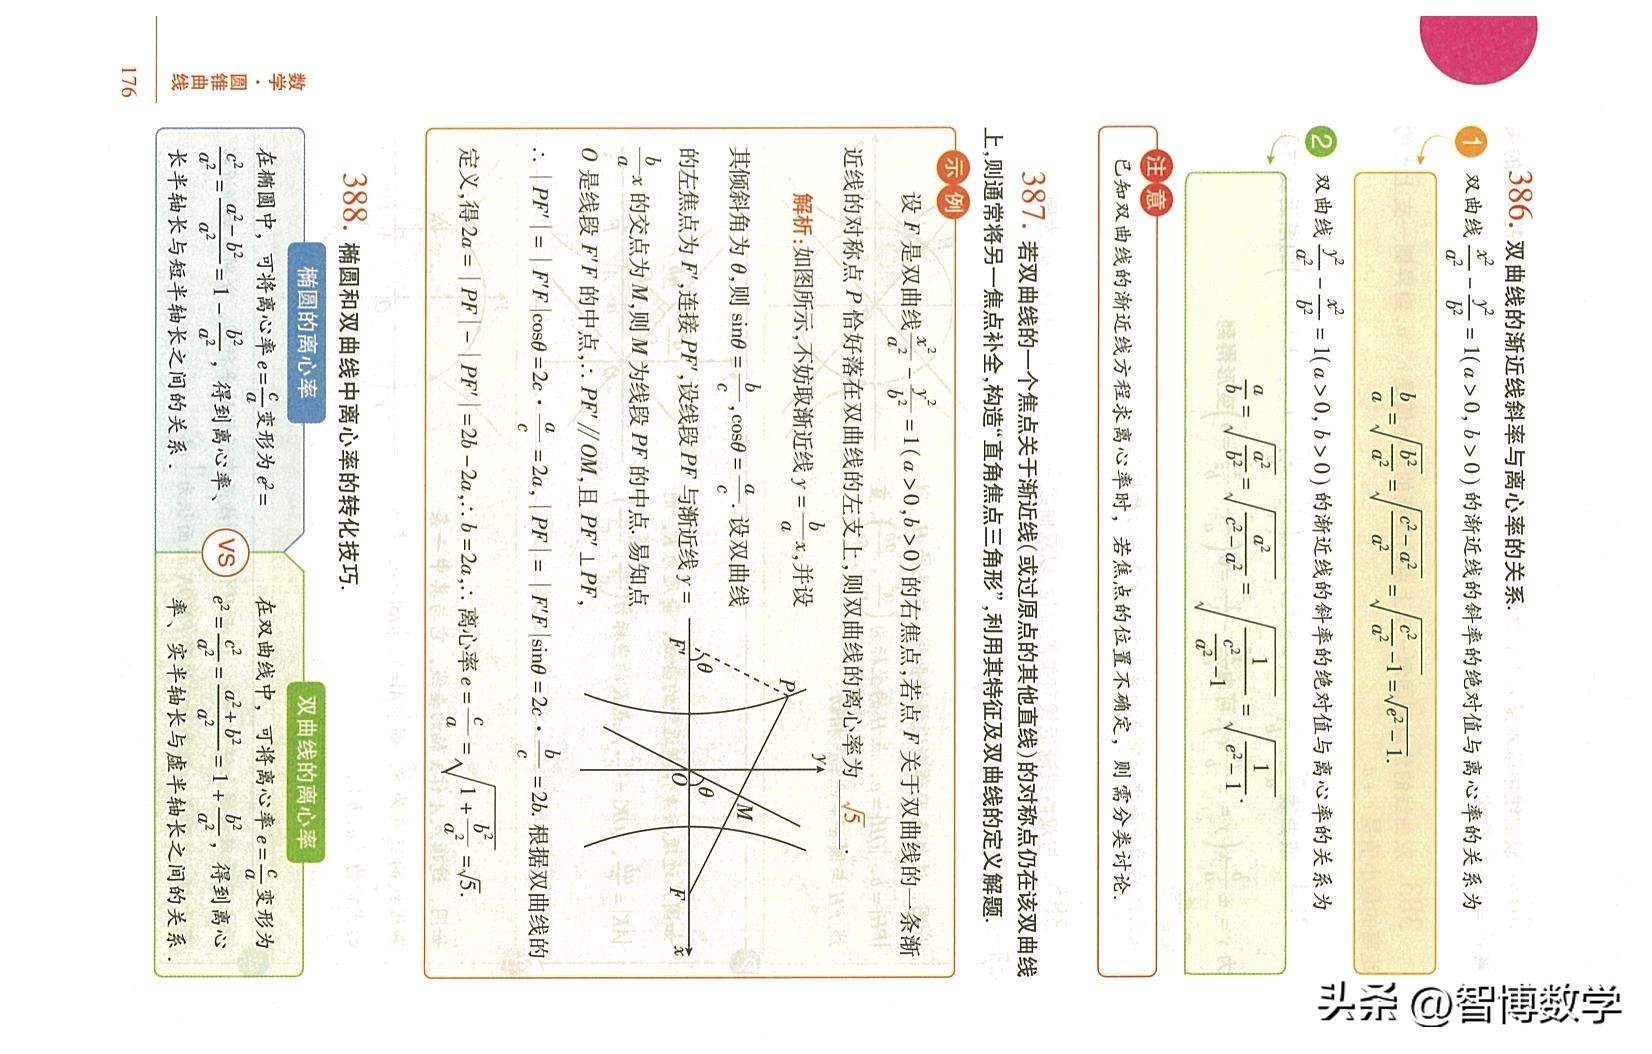 386. 双曲线的渐近线斜率与离心率的关系.
1 双曲线x²/a² - y²/b² = 1(a>0,b>0)的渐近线的斜率的绝对值与离心率的关系为
b/a = √(b²/a²) = √((c²-a²)/a²) = √(c²/a² - 1) = √(e²-1).
2 双曲线y²/a² - x²/b² = 1(a>0,b>0)的渐近线的斜率的绝对值与离心率的关系为
a/b = √(a²/b²) = √(a²/(c²-a²)) = √(1/(c²/a² - 1)) = √(1/(e²-1)).
注意
已知双曲线的渐近线方程求离心率时,若焦点的位置不确定,则需分类讨论.
387. 若双曲线的一个焦点关于渐近线(或过原点的其他直线)的对称点仍在该双曲线
上,则通常将另一焦点补全,构造“直角焦点三角形”,利用其特征及双曲线的定义解题.
示例
设F是双曲线x²/a² - y²/b² = 1(a>0,b>0)的右焦点,若点F关于双曲线的一条渐
近线的对称点P恰好落在双曲线的左支上,则双曲线的离心率为 √5 .
解析:如图所示,不妨取渐近线y = b/a x,并设
其倾斜角为θ,则sinθ = b/c,cosθ = a/c. 设双曲线
的左焦点为F′,连接PF′,设线段PF与渐近线y =
b/a x的交点为M,则M为线段PF的中点. 易知点
O是线段F′F的中点,∴PF′//OM,且PF′⊥PF,
∴|PF′| = |F′F|cosθ = 2c·a/c = 2a,|PF| = |F′F|sinθ = 2c·b/c = 2b. 根据双曲线的
定义,得2a = |PF| - |PF′| = 2b - 2a,∴b = 2a,∴离心率e = c/a = √(1 + b²/a²) = √5.
y
P
M
F′
θ
O
θ
F
x
388. 椭圆和双曲线中离心率的转化技巧.
椭圆的离心率
在椭圆中,可将离心率e = c/a变形为e² =
c²/a² = (a²-b²)/a² = 1 - b²/a²,得到离心率、
长半轴长与短半轴长之间的关系.
VS
双曲线的离心率
在双曲线中,可将离心率e = c/a变形为
e² = c²/a² = (a²+b²)/a² = 1 + b²/a²,得到离心
率、实半轴长与虚半轴长之间的关系.
数学·圆锥曲线
176
头条 @智博数学